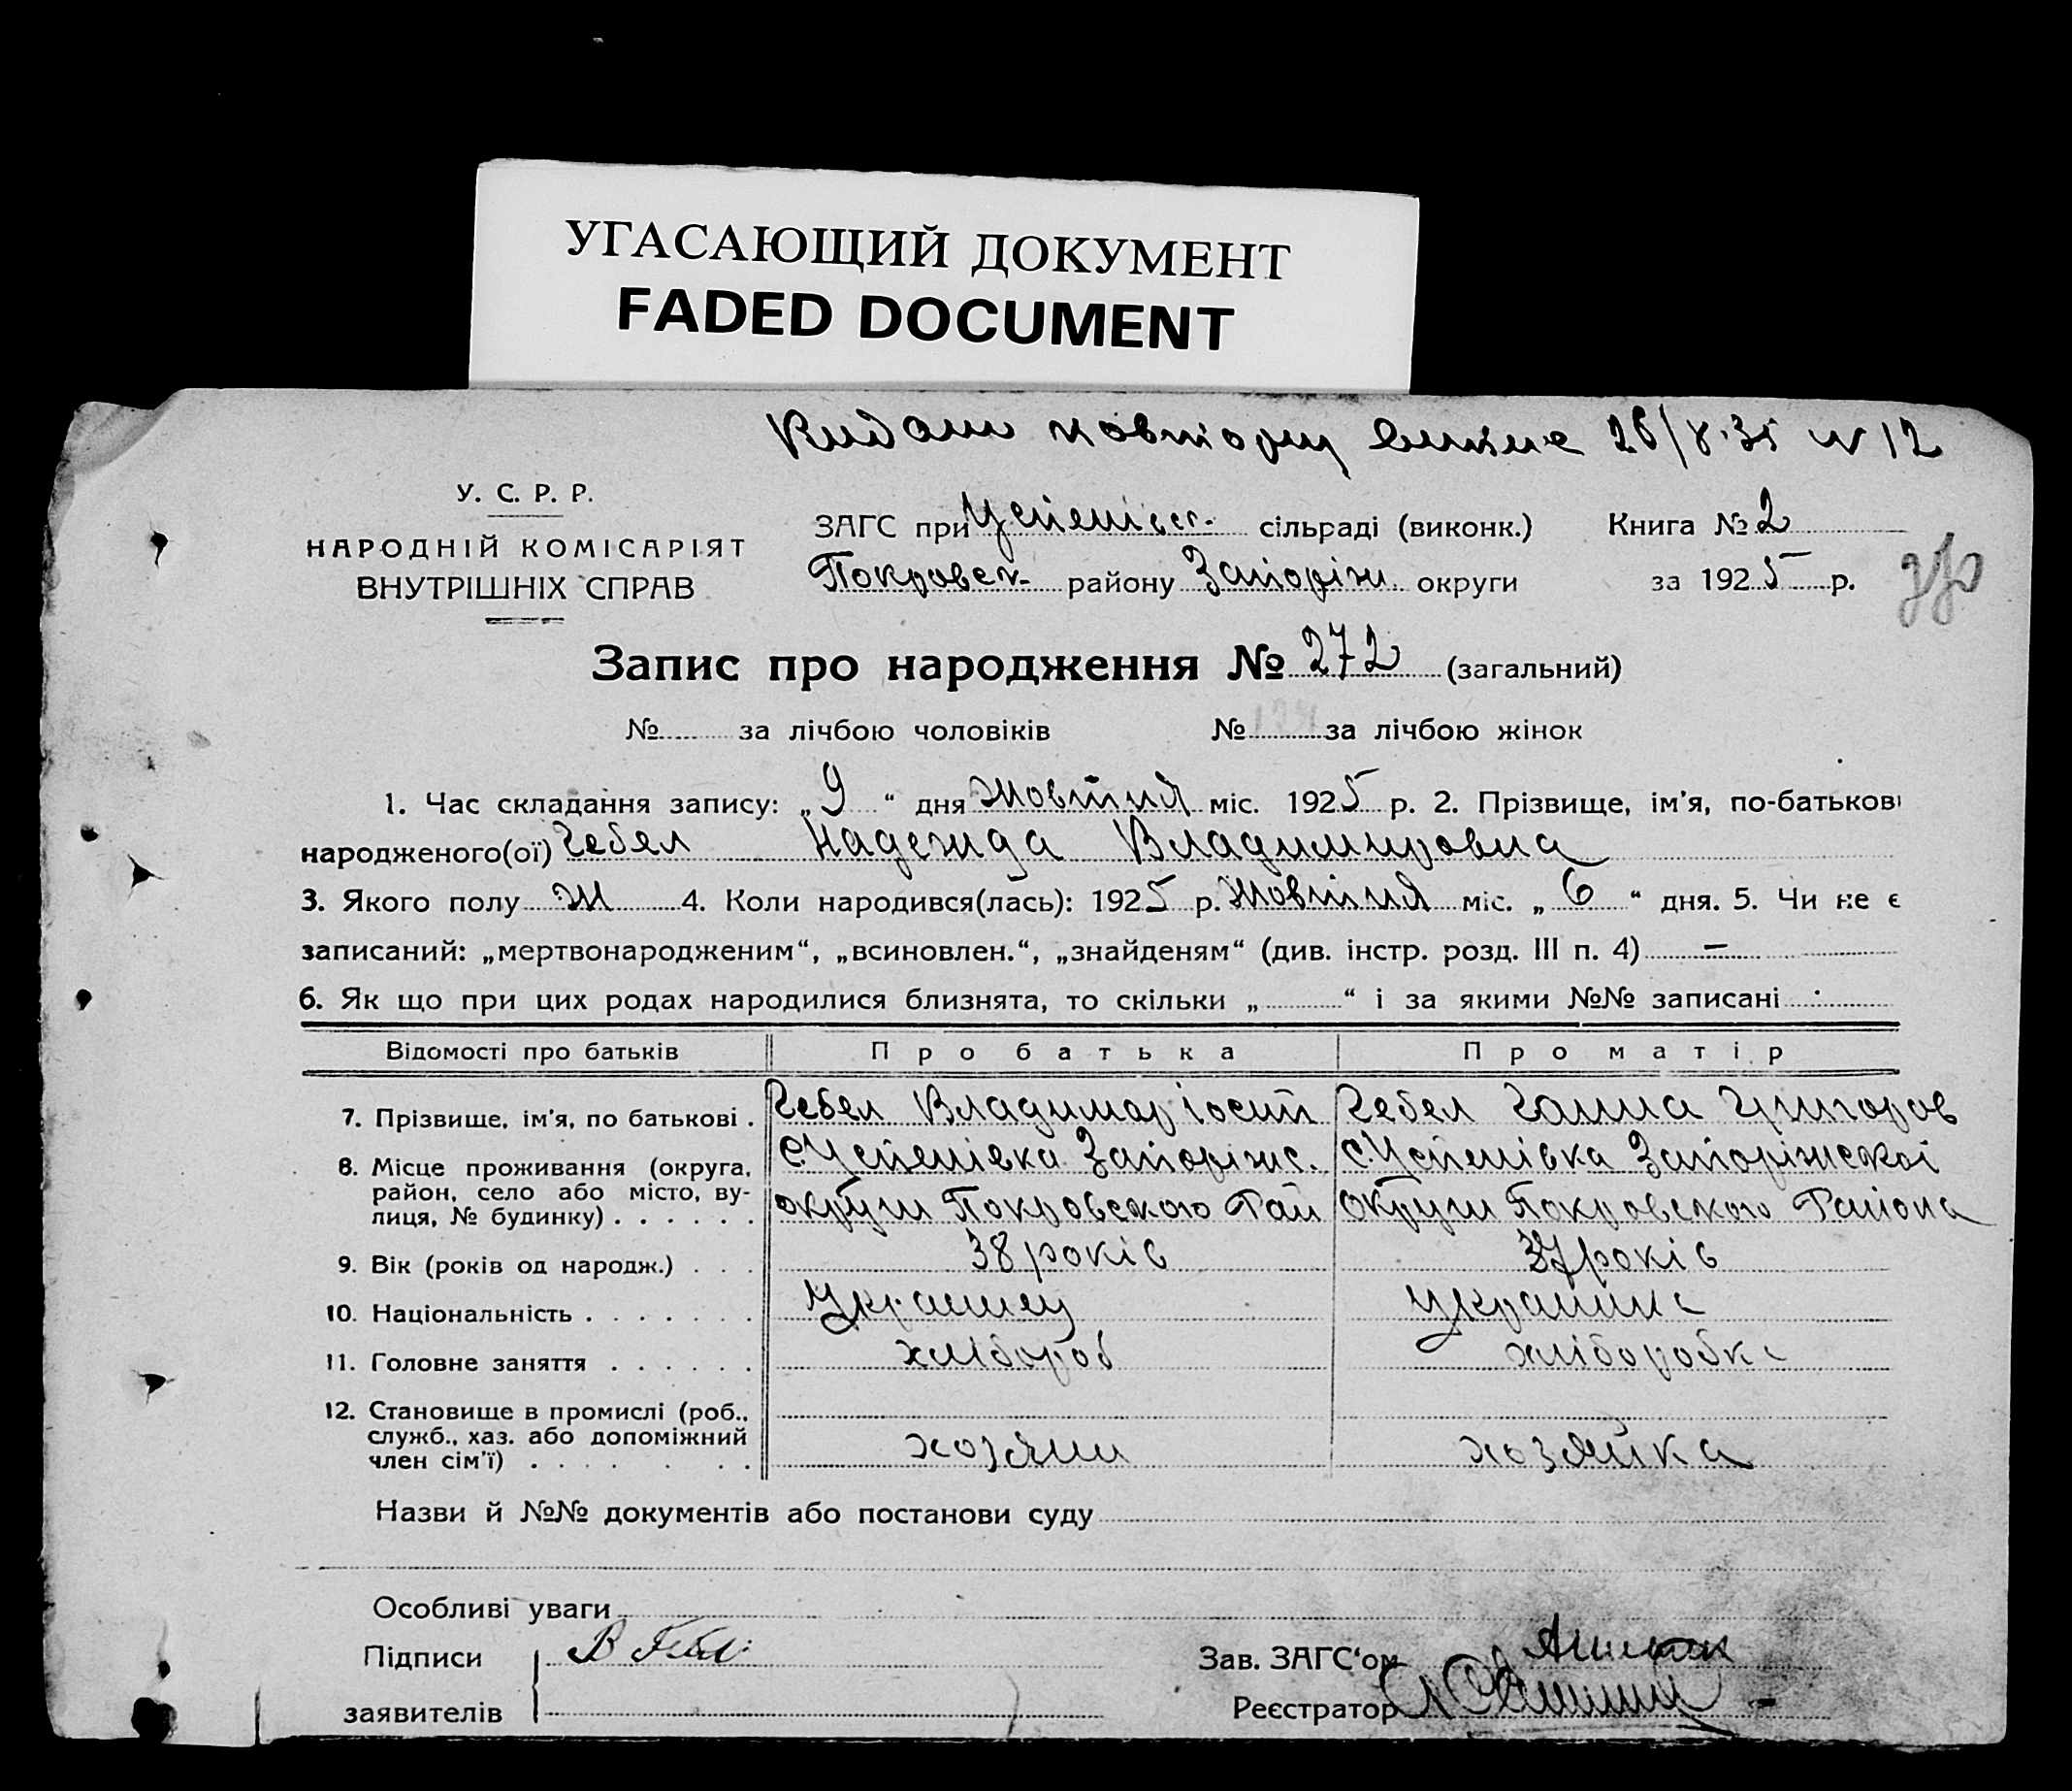 УГАСАЮЩИЙ ДОКУМЕНТ
FADED DOCUMENT
Видани повторну 26/8.35 N 12
У. С. Р. Р.
НАРОДНІЙ КОМІСАРІЯТ
ВНУТРІШНІХ СПРАВ
ЗАГС при Успенівск. сільраді (виконк.) Книга № 2
Покровск. району Запоріж. округи за 1925 р.
Запис про народження № 272 (загальний)
№ за лічбою чоловіків № за лічбою жінок
1. Час складання запису: „9“ дня Жовтня міс. 1925 р. 2. Прізвище, ім'я, по-батькові
народженого(ої) Гебел Надежда Владимировна
3. Якого полу Ж 4. Коли народився(лась): 1925 р. Жовтня міс. „6“ дня. 5. Чи не є
записаний: „мертвонародженим“, „всиновлен.“, „знайденям“ (див. інстр. розд. III п. 4) –
6. Як що при цих родах народилися близнята, то скільки „ “ і за якими №№ записані
Відомості про батьків Про батька Про матір
7. Прізвище, ім'я, по батькові . Гебел Владимир Іосип Гебел Ганна Григоров
8. Місце проживання (округа, с. Успенівка Запоріжс. с. Успенівка Запоріжскої
район, село або місто, ву-
лиця, № будинку) . . . . . . округи Покровского Рай округи Покровского Района
9. Вік (років од народж.) . . . 38 років 37 років
10. Національність . . . . . . . Украинец украинка
11. Головне заняття . . . . . . хлібороб хліборобка
12. Становище в промислі (роб.,
служб., хаз. або допоміжний
член сім'ї) . . . . . . . хозяин хозяйка
Назви й №№ документів або постанови суду
Особливі уваги
Підписи В Гебел Зав. ЗАГС'ом
заявителів Реєстратор